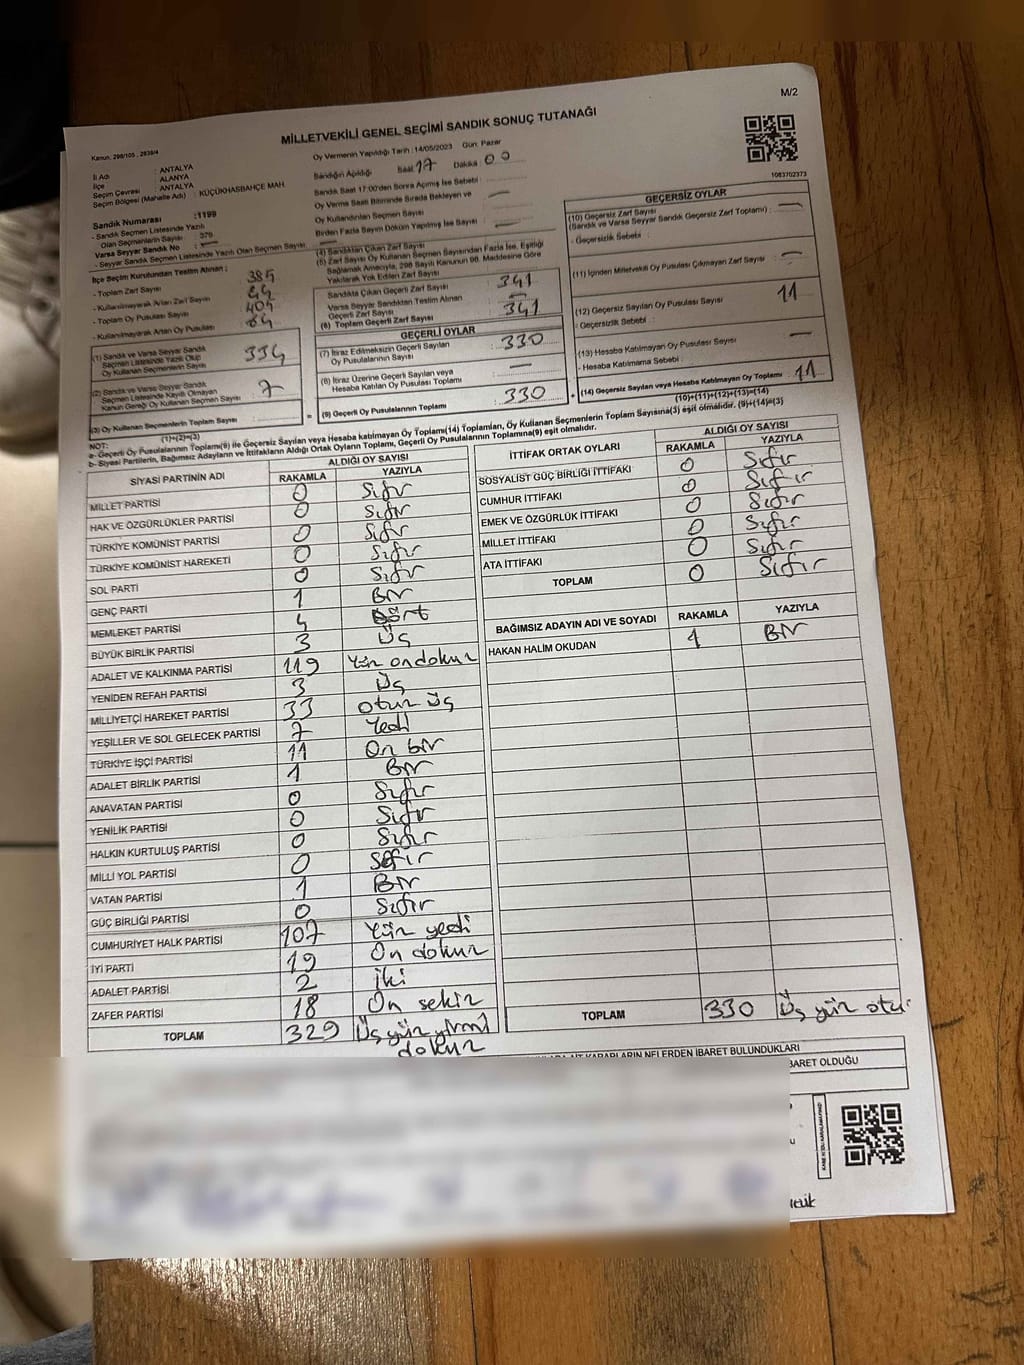 M/2
MİLLETVEKİLİ GENEL SEÇİMİ SANDIK SONUÇ TUTANAĞI
Kanun. 298/105 , 2839/4
İl Adı : ANTALYA
İlçe : ALANYA
Seçim Çevresi : ANTALYA
Seçim Bölgesi (Mahalle Adı) : KÜÇÜKHASBAHÇE MAH.
Sandık Numarası :1199
- Sandık Seçmen Listesinde Yazılı
Olan Seçmenlerin Sayısı : 376
Varsa Seyyar Sandık No : —
- Seyyar Sandık Seçmen Listesinde Yazılı Olan Seçmen Sayısı : —
Oy Vermenin Yapıldığı Tarih : 14/05/2023 Gün: Pazar
Sandığın Açıldığı Saat 17 Dakika 00
Sandık Saat 17:00'den Sonra Açılmış İse Sebebi :
Oy Verme Saati Bitiminde Sırada Bekleyen ve
Oy Kullandırılan Seçmen Sayısı —
Birden Fazla Sayım Döküm Yapılmış İse Sayısı : —
1083702373
İlçe Seçim Kurulundan Teslim Alınan :
- Toplam Zarf Sayısı 385
- Kullanılmayarak Artan Zarf Sayısı 44
- Toplam Oy Pusulası Sayısı 404
- Kullanılmayarak Artan Oy Pusulası 64
(1) Sandık ve Varsa Seyyar Sandık
Seçmen Listesinde Yazılı Olup
Oy Kullanan Seçmenlerin Sayısı 334
(2) Sandık ve Varsa Seyyar Sandık
Seçmen Listesinde Kayıtlı Olmayan
Kanun Gereği Oy Kullanan Seçmen Sayısı 7
(3) Oy Kullanan Seçmenlerin Toplam Sayısı :
(1)+(2)=(3)
(4) Sandıktan Çıkan Zarf Sayısı
(5) Zarf Sayısı Oy Kullanan Seçmen Sayısından Fazla İse, Eşitliği
Sağlamak Amacıyla, 298 Sayılı Kanunun 98. Maddesine Göre
Yakılarak Yok Edilen Zarf Sayısı
Sandıkta Çıkan Geçerli Zarf Sayısı 341
Varsa Seyyar Sandıktan Teslim Alınan
Geçerli Zarf Sayısı —
(6) Toplam Geçerli Zarf Sayısı 341
GEÇERLİ OYLAR
(7) İtiraz Edilmeksizin Geçerli Sayılan
Oy Pusulalarının Sayısı : 330
(8) İtiraz Üzerine Geçerli Sayılan veya
Hesaba Katılan Oy Pusulası Toplamı —
(9) Geçerli Oy Pusulalarının Toplamı : 330
GEÇERSİZ OYLAR
(10) Geçersiz Zarf Sayısı
(Sandık ve Varsa Seyyar Sandık Geçersiz Zarf Toplamı) : —
- Geçersizlik Sebebi :
(11) İçinden Milletvekili Oy Pusulası Çıkmayan Zarf Sayısı —
(12) Geçersiz Sayılan Oy Pusulası Sayısı 11
- Geçersizlik Sebebi :
(13) Hesaba Katılmayan Oy Pusulası Sayısı —
- Hesaba Katılmama Sebebi :
(14) Geçersiz Sayılan veya Hesaba Katılmayan Oy Toplamı 11
(10)+(11)+(12)+(13)=(14)
NOT:
a- Geçerli Oy Pusulalarının Toplamı(9) ile Geçersiz Sayılan veya Hesaba katılmayan Oy Toplamı(14) Toplamları, Oy Kullanan Seçmenlerin Toplam Sayısına(3) eşit olmalıdır. (9)+(14)=(3)
b- Siyasi Partilerin, Bağımsız Adayların ve İttifakların Aldığı Ortak Oyların Toplamı, Geçerli Oy Pusulalarının Toplamına(9) eşit olmalıdır.
SİYASİ PARTİNİN ADI ALDIĞI OY SAYISI
RAKAMLA YAZIYLA
MİLLET PARTİSİ 0 Sıfır
HAK VE ÖZGÜRLÜKLER PARTİSİ 0 Sıfır
TÜRKİYE KOMÜNİST PARTİSİ 0 Sıfır
TÜRKİYE KOMÜNİST HAREKETİ 0 Sıfır
SOL PARTİ 0 Sıfır
GENÇ PARTİ 1 Bir
MEMLEKET PARTİSİ 4 Dört
BÜYÜK BİRLİK PARTİSİ 3 Üç
ADALET VE KALKINMA PARTİSİ 119 Yüz ondokuz
YENİDEN REFAH PARTİSİ 3 Üç
MİLLİYETÇİ HAREKET PARTİSİ 33 otuz üç
YEŞİLLER VE SOL GELECEK PARTİSİ 7 Yedi
TÜRKİYE İŞÇİ PARTİSİ 11 On bir
ADALET BİRLİK PARTİSİ 1 Bir
ANAVATAN PARTİSİ 0 Sıfır
YENİLİK PARTİSİ 0 Sıfır
HALKIN KURTULUŞ PARTİSİ 0 Sıfır
MİLLİ YOL PARTİSİ 0 Sıfır
VATAN PARTİSİ 1 Bir
GÜÇ BİRLİĞİ PARTİSİ 0 Sıfır
CUMHURİYET HALK PARTİSİ 107 Yüz yedi
İYİ PARTİ 19 On dokuz
ADALET PARTİSİ 2 iki
ZAFER PARTİSİ 18 On sekiz
TOPLAM 329 Üç yüz yirmi
dokuz
İTTİFAK ORTAK OYLARI ALDIĞI OY SAYISI
RAKAMLA YAZIYLA
SOSYALİST GÜÇ BİRLİĞİ İTTİFAKI 0 Sıfır
CUMHUR İTTİFAKI 0 Sıfır
EMEK VE ÖZGÜRLÜK İTTİFAKI 0 Sıfır
MİLLET İTTİFAKI 0 Sıfır
ATA İTTİFAKI 0 Sıfır
TOPLAM 0 Sıfır
BAĞIMSIZ ADAYIN ADI VE SOYADI RAKAMLA YAZIYLA
HAKAN HALİM OKUDAN 1 Bir
TOPLAM 330 Üç yüz otu
KARARLARIN NELERDEN İBARET BULUNDUKLARI
BARET OLDUĞU